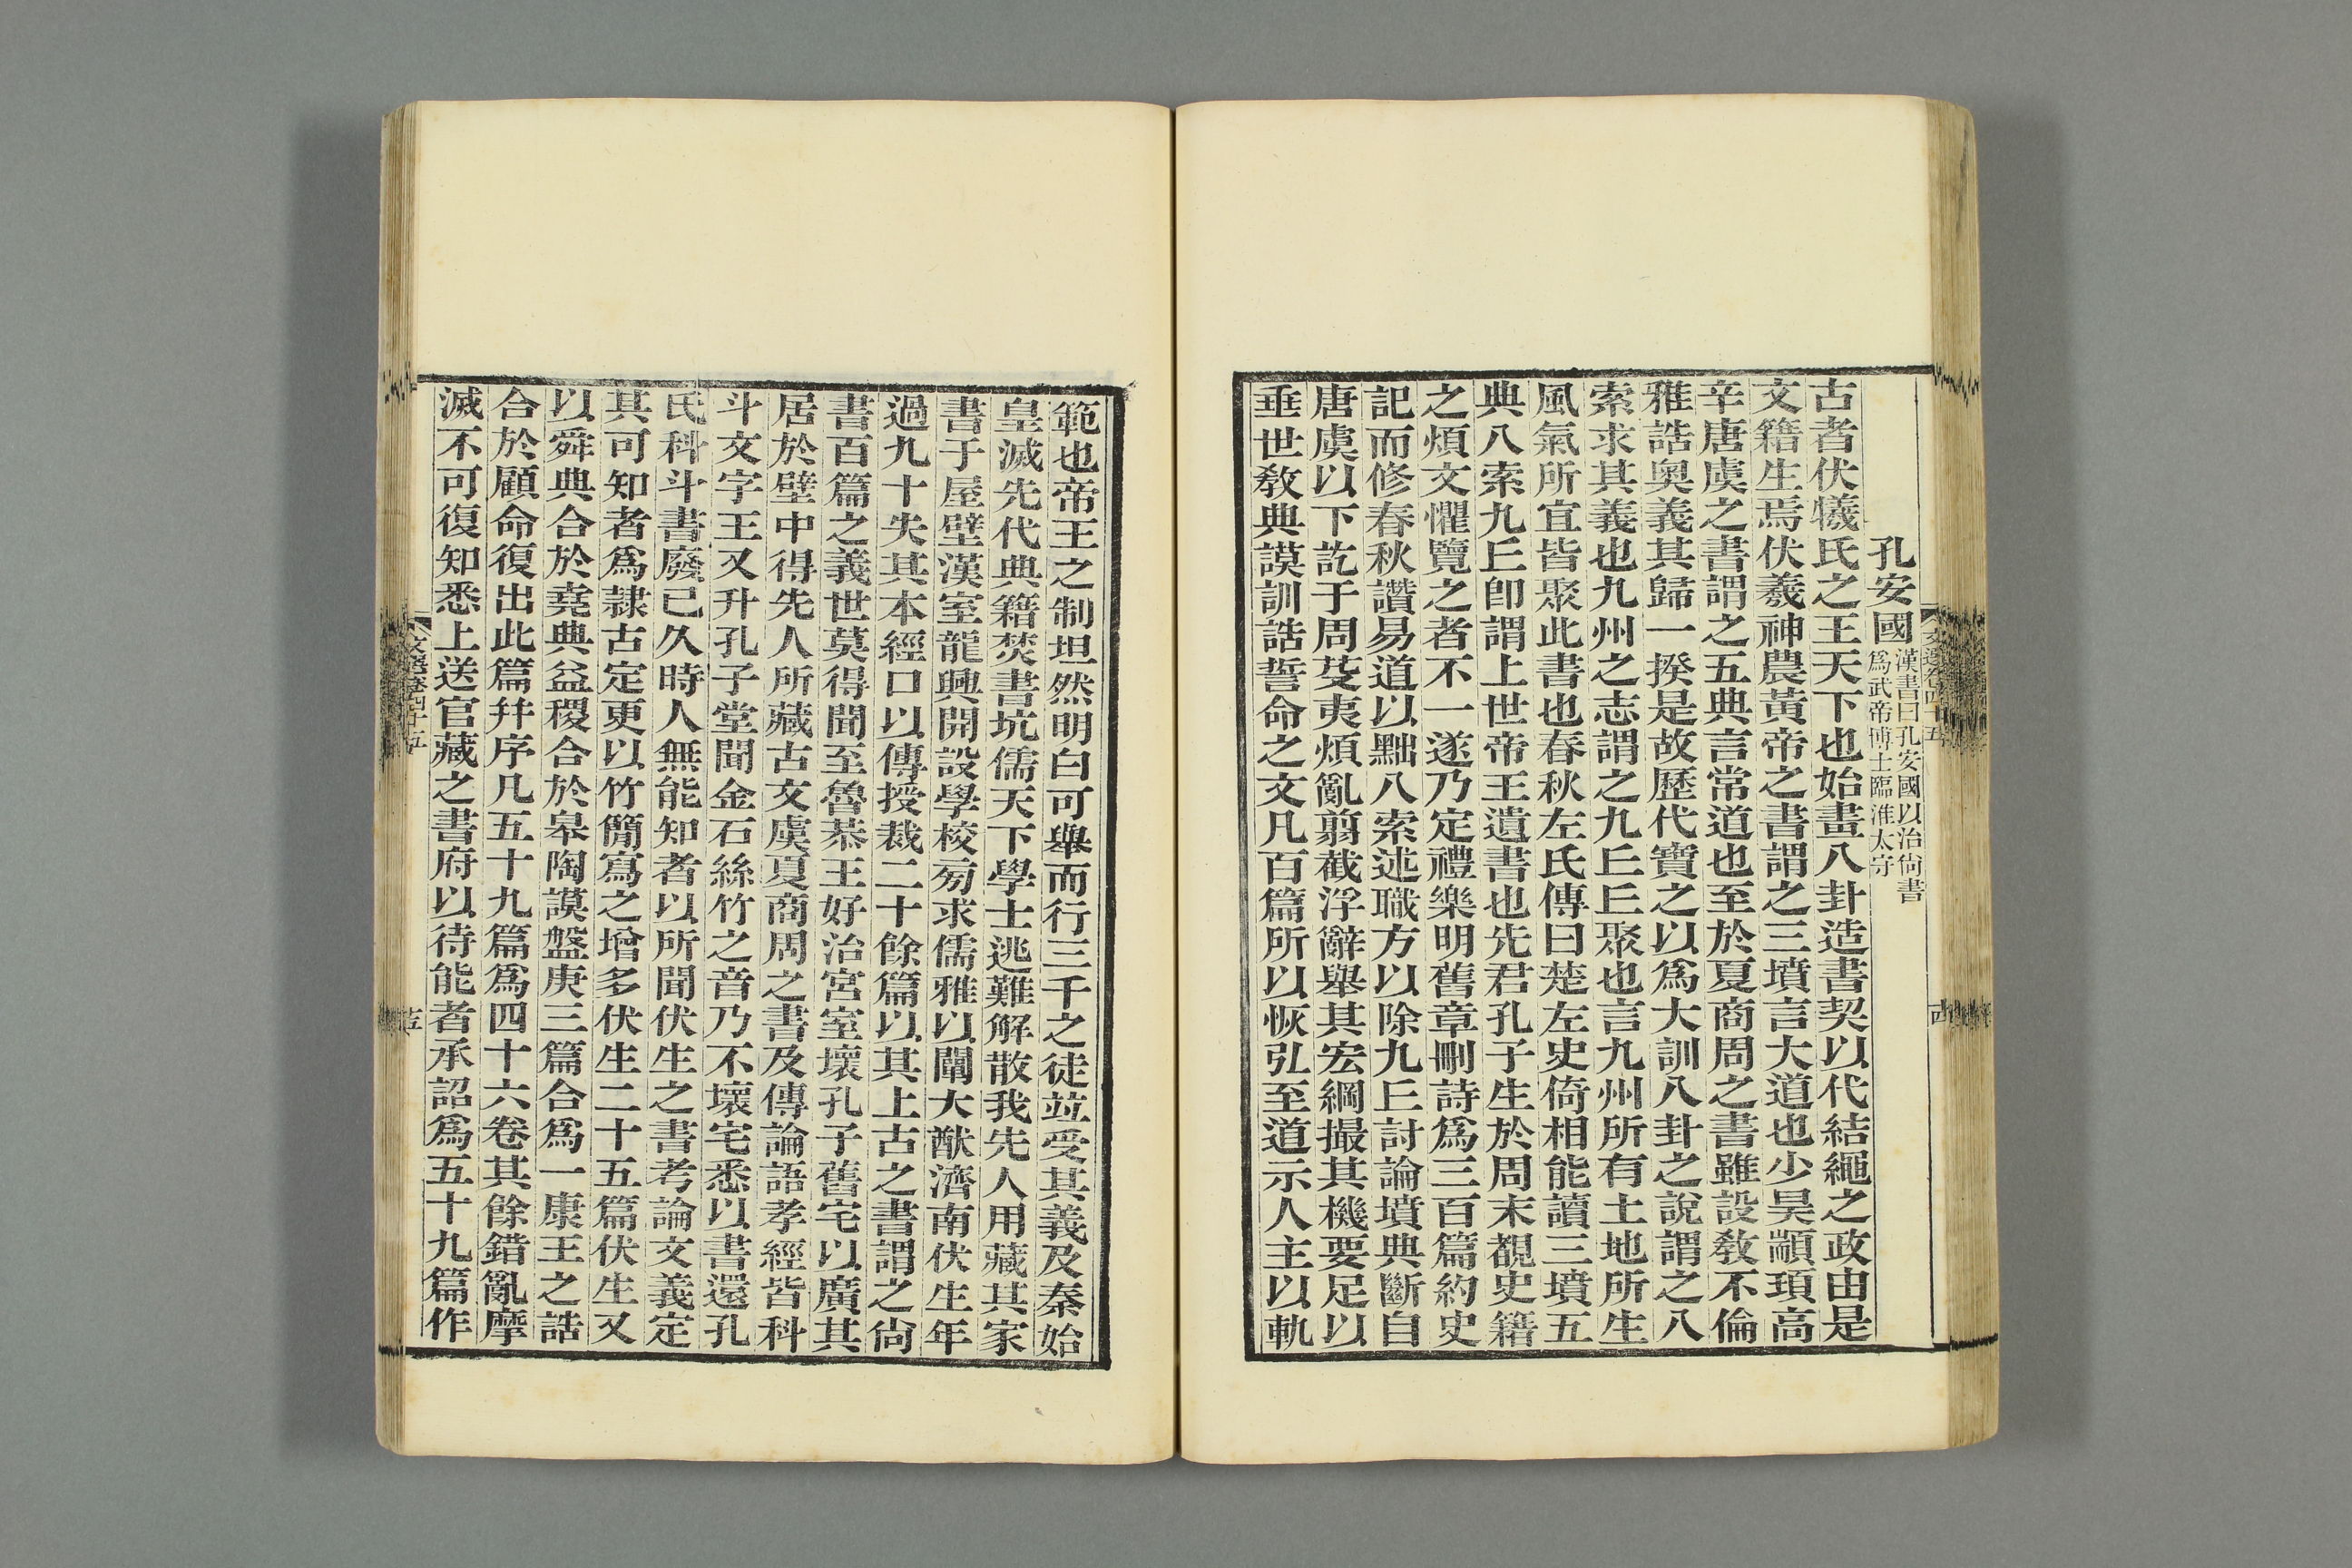 孔安國
漢書曰孔安國以治尙書
爲武帝博士臨淮太守
古者伏犧氏之王天下也始畫八卦造書契以代結繩之政由是
文籍生焉伏羲神農黃帝之書謂之三墳言大道也少昊顓頊高
辛唐虞之書謂之五典言常道也至於夏商周之書雖設敎不倫
雅誥奧義其歸一揆是故歷代寶之以爲大訓八卦之說謂之八
索求其義也九州之志謂之九𠀉𠀉聚也言九州所有土地所生
風氣所宜皆聚此書也春秋左氏傳曰楚左史倚相能讀三墳五
典八索九𠀉卽謂上世帝王遺書也先君孔子生於周末覩史籍
之煩文懼覽之者不一遂乃定禮樂明舊章刪詩爲三百篇約史
記而修春秋讚易道以黜八索述職方以除九𠀉討論墳典斷自
唐虞以下訖于周芟夷煩亂翦截浮辭舉其宏綱撮其機要足以
垂世敎典謨訓誥誓命之文凡百篇所以恢弘至道示人主以軌
範也帝王之制坦然明白可舉而行三千之徒並受其義及秦始
皇滅先代典籍焚書坑儒天下學士逃難解散我先人用藏其家
書于屋壁漢室龍興開設學校旁求儒雅以闡大猷濟南伏生年
過九十失其本經口以傳授裁二十餘篇以其上古之書謂之尙
書百篇之義世莫得聞至魯恭王好治宮室壞孔子舊宅以廣其
居於壁中得先人所藏古文虞夏商周之書及傳論語孝經皆科
斗文字王又升孔子堂聞金石絲竹之音乃不壞宅悉以書還孔
氏科斗書廢已久時人無能知者以所聞伏生之書考論文義定
其可知者爲隷古定更以竹簡寫之增多伏生二十五篇伏生又
以舜典合於堯典益稷合於皋陶謨盤庚三篇合爲一康王之誥
合於顧命復出此篇幷序凡五十九篇爲四十六卷其餘錯亂摩
滅不可復知悉上送官藏之書府以待能者承詔爲五十九篇作